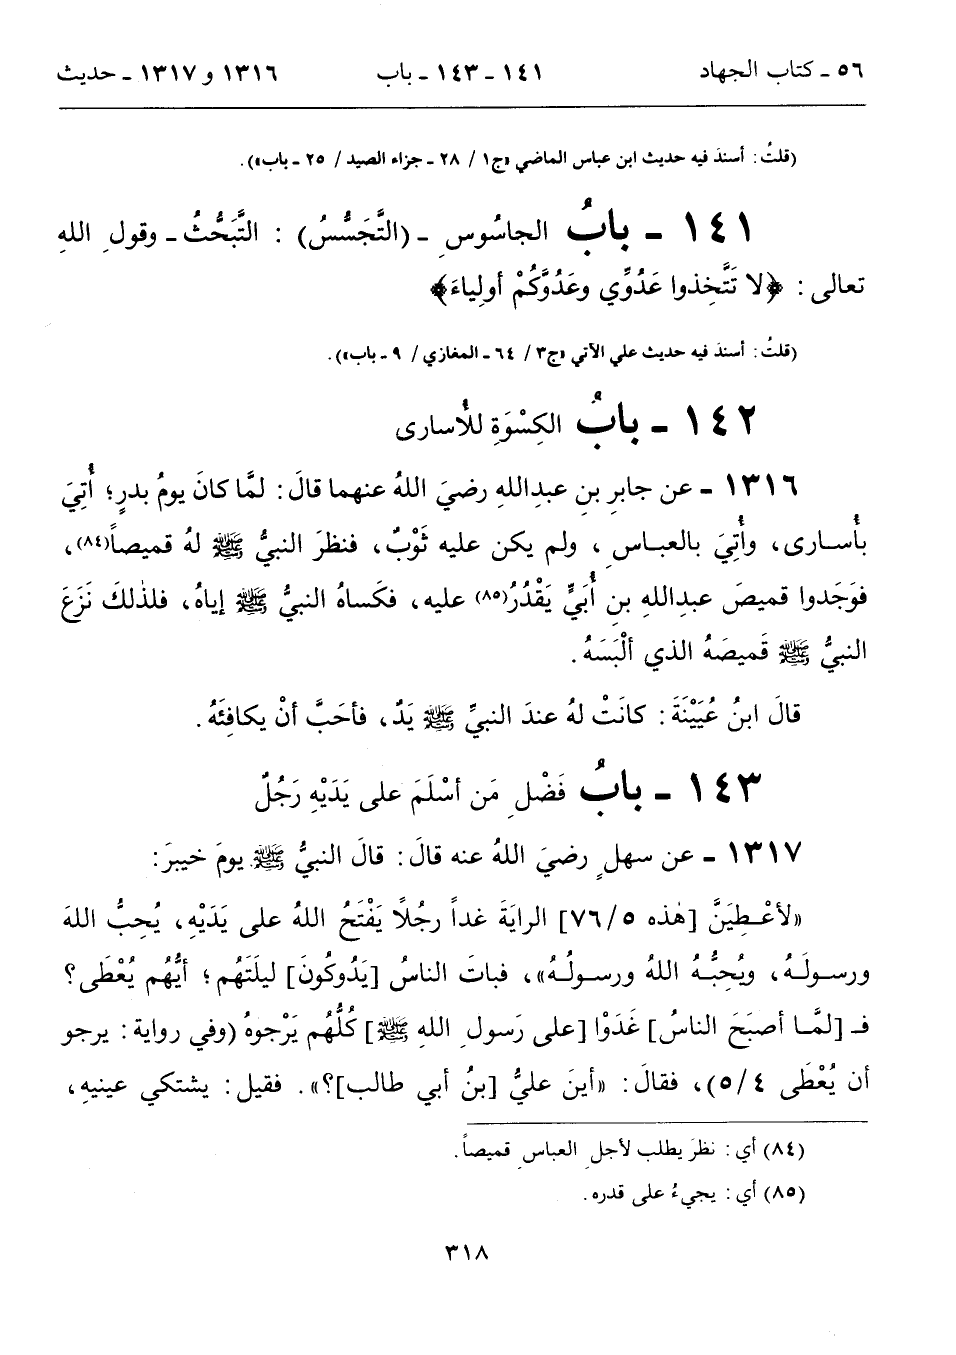 ٥٦ ـ كتاب الجهاد ١٤١ ـ ١٤٣ ـ باب ١٣١٦ و ١٣١٧ ـ حديث
(قلتُ: أسندَ فيه حديث ابن عباس الماضي «ج١ / ٢٨ ـ جزاء الصيد / ٢٥ ـ باب»).
١٤١ ـ بابُ الجاسُوسِ ـ (التَّجَسُّسُ) : التَّبَحُّثُ ـ وقولِ اللهِ
تعالى: ﴿لا تَتَّخِذوا عَدُوِّي وعَدُوَّكُمْ أولِياءَ﴾
(قلتُ: أسندَ فيه حديث علي الآتي «ج٣ / ٦٤ ـ المغازي / ٩ ـ باب»).
١٤٢ ـ بابُ الكِسْوَةِ للأُسارى
١٣١٦ ـ عن جابرِ بنِ عبدِاللهِ رضيَ اللهُ عنهما قالَ: لمَّا كانَ يومُ بدرٍ؛ أُتِيَ
بأُسـارى، وأُتِيَ بالعبـاسِ، ولم يكن عليه ثَوْبٌ، فنظرَ النبيُّ ﷺ لهُ قميصاً(٨٤)،
فوَجَدوا قميصَ عبدِاللهِ بنِ أُبَيٍّ يَقْدُرُ(٨٥) عليه، فكَساهُ النبيُّ ﷺ إياهُ، فلذٰلكَ نَزَعَ
النبيُّ ﷺ قَميصَهُ الذي ألْبَسَهُ.
قالَ ابنُ عُيَيْنَةَ: كانَتْ لهُ عندَ النبيِّ ﷺ يَدٌ، فأحَبَّ أنْ يكافِئَهُ.
١٤٣ ـ بابُ فَضْلِ مَن أسْلَمَ على يَدَيْهِ رَجُلٌ
١٣١٧ ـ عن سهلٍ رضيَ اللهُ عنه قالَ: قالَ النبيُّ ﷺ يومَ خيبرَ:
«لأعْـطِيَنَّ [هٰذه ٥/٧٦] الرايَةَ غداً رجُلاً يَفْتَحُ اللهُ على يَدَيْهِ، يُحِبُّ اللهَ
ورسولَـهُ، ويُحِبُّـهُ اللهُ ورسـولُـهُ»، فباتَ الناسُ [يَدُوكُونَ] ليلَتَهُم؛ أيُّهُم يُعْطَى؟
فـ [لمَّـا أصبَحَ الناسُ] غَدَوْا [على رَسولِ اللهِ ﷺ] كُلُّهُم يَرْجوهُ (وفي رواية: يرجو
أن يُعْطَى ٤/٥)، فقالَ: «أينَ عليُّ [بنُ أبي طالب]؟». فقيل: يشتكي عينيهِ،
(٨٤) أي: نظرَ يطلب لأجلِ العباسِ قميصاً.
(٨٥) أي: يجيءُ على قدره.
٣١٨